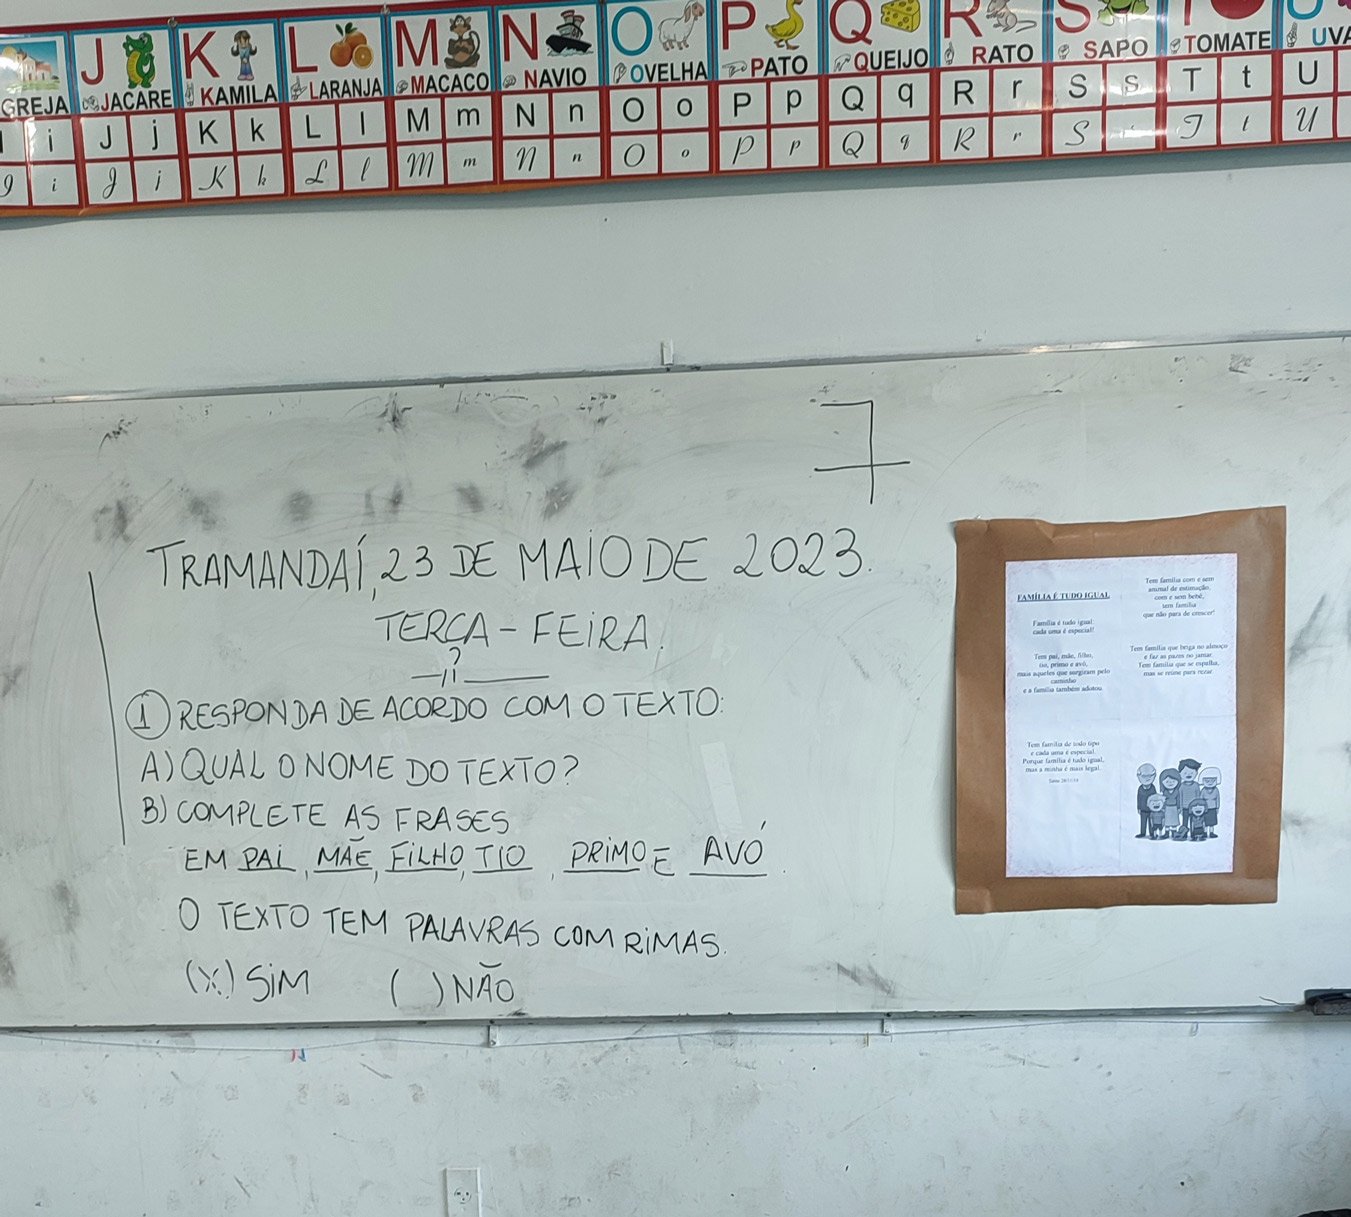 J K L M N O P Q R S
GREJA JACARE KAMILA LARANJA MACACO NAVIO OVELHA PATO QUEIJO RATO SAPO TOMATE UVA
i J j K k L l M m N n O o P p Q q R r S s T t U
I i J j K k L l M m N n O o P p Q q R r S T t U
7
TRAMANDAÍ, 23 DE MAIO DE 2023.
TERÇA-FEIRA.
-11-
① RESPONDA DE ACORDO COM O TEXTO:
A) QUAL O NOME DO TEXTO?
B) COMPLETE AS FRASES
EM PAI, MÃE, FILHO, TIO, PRIMO E AVÓ.
O TEXTO TEM PALAVRAS COM RIMAS.
(X) SIM ( ) NÃO
FAMÍLIA É TUDO IGUAL
Família é tudo igual:
cada uma é especial!
Tem pai, mãe, filho,
tio, primo e avó,
mais aqueles que surgiram pelo
caminho
e a família também adotou.
Tem família de todo tipo
e cada uma é especial.
Porque família é tudo igual,
mas a minha é mais legal.
Tem família com e sem
animal de estimação,
com e sem bebê,
tem família
que não para de crescer!
Tem família que briga no almoço
e faz as pazes no jantar.
Tem família que se espalha,
mas se reúne para rezar.